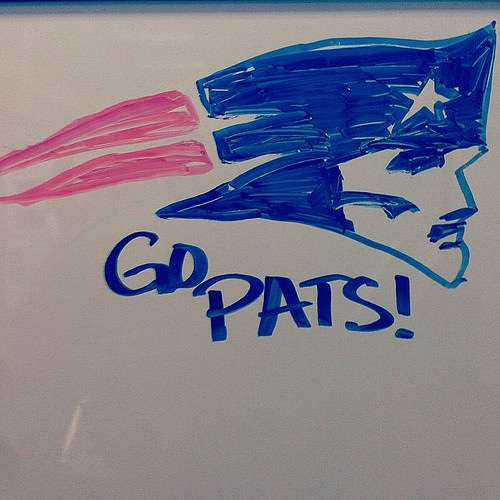 GO
PATS!